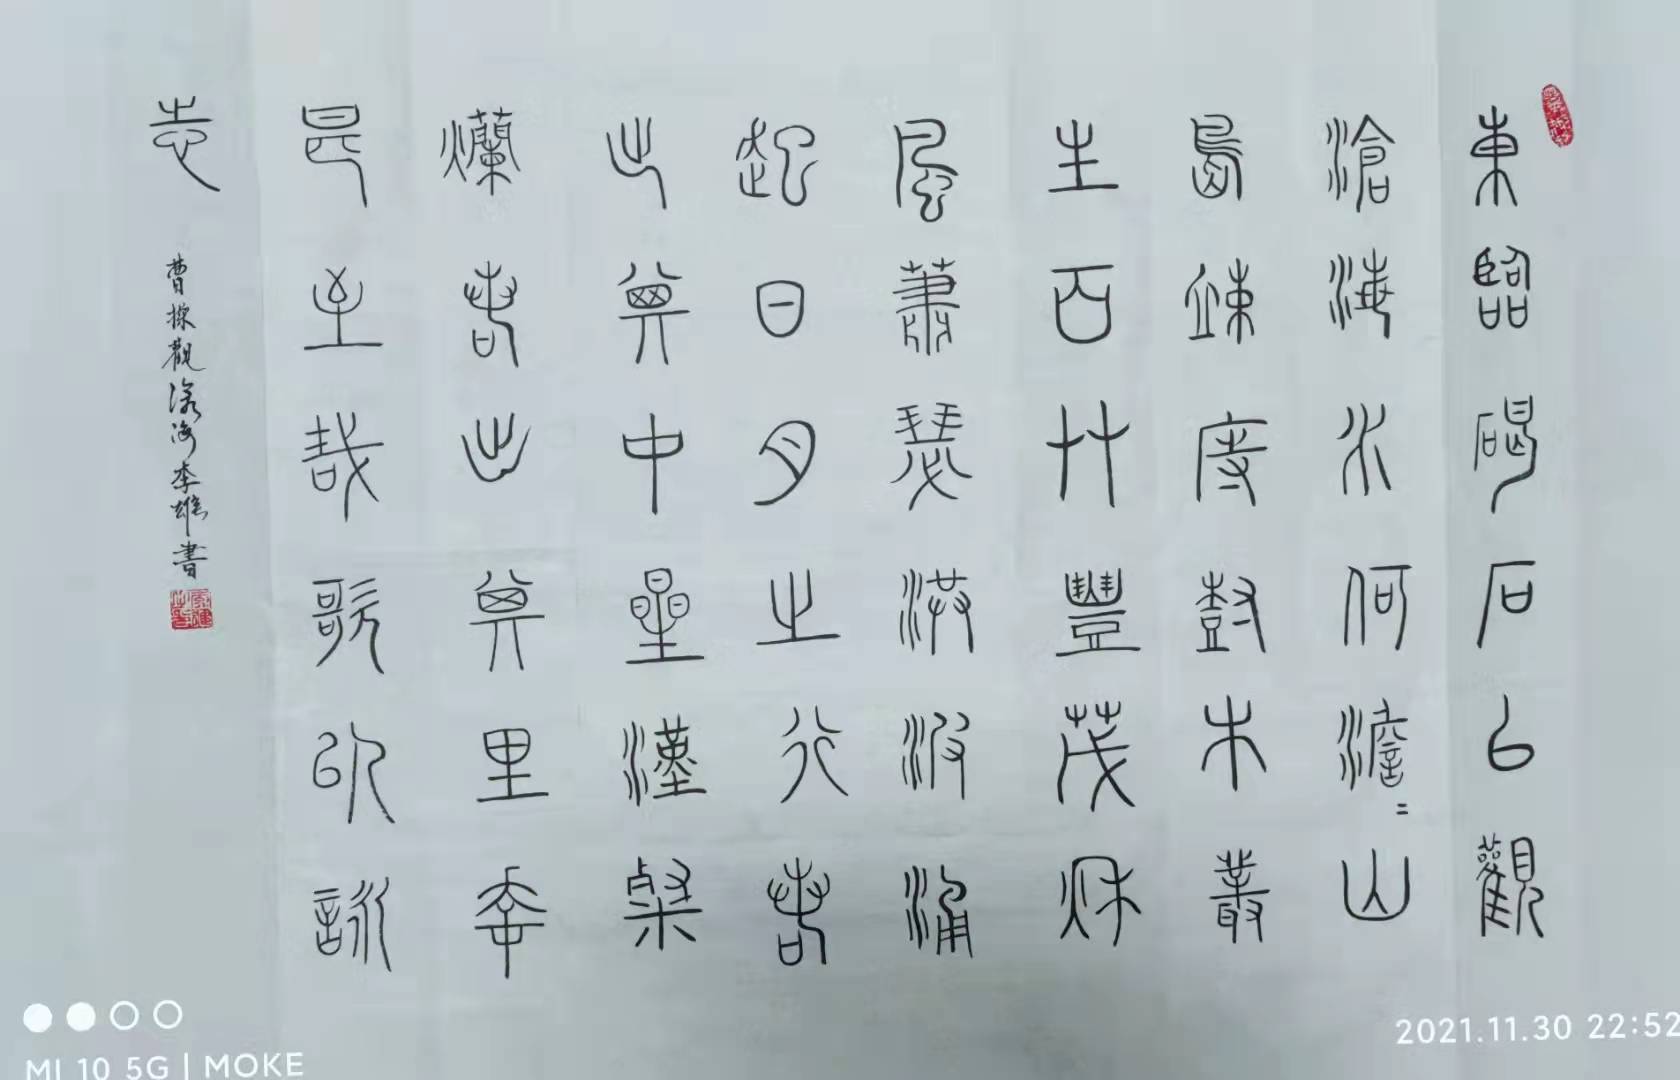 東臨碣石以觀
滄海水何澹〻山
島竦峙樹木叢
生百艸豐茂秋
風蕭瑟洪波涌
起日月之行若
出其中星漢粲
爛若出其里幸
甚至哉歌以詠
志
曹操觀滄海李雄書
MI 10 5G | MOKE
2021.11.30 22:52